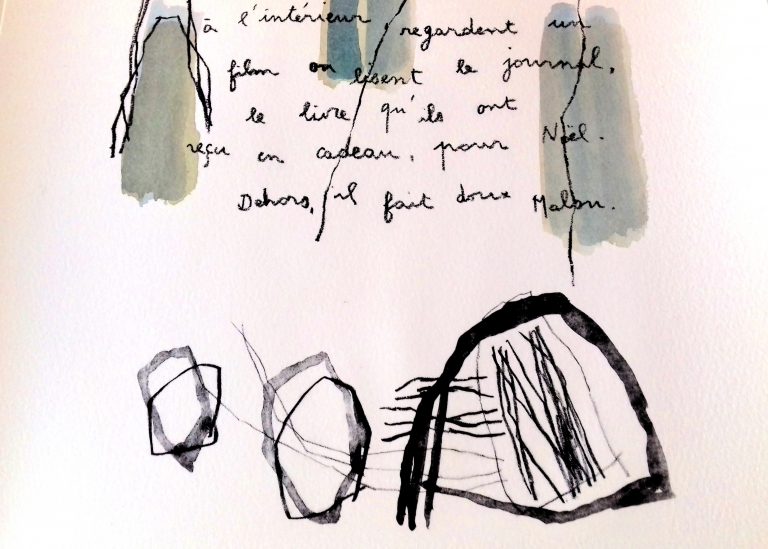 à l'intérieur, regardent un
film ou lisent le journal,
le livre qu'ils ont
reçu en cadeau, pour Noël.
Dehors, il fait doux Malou.